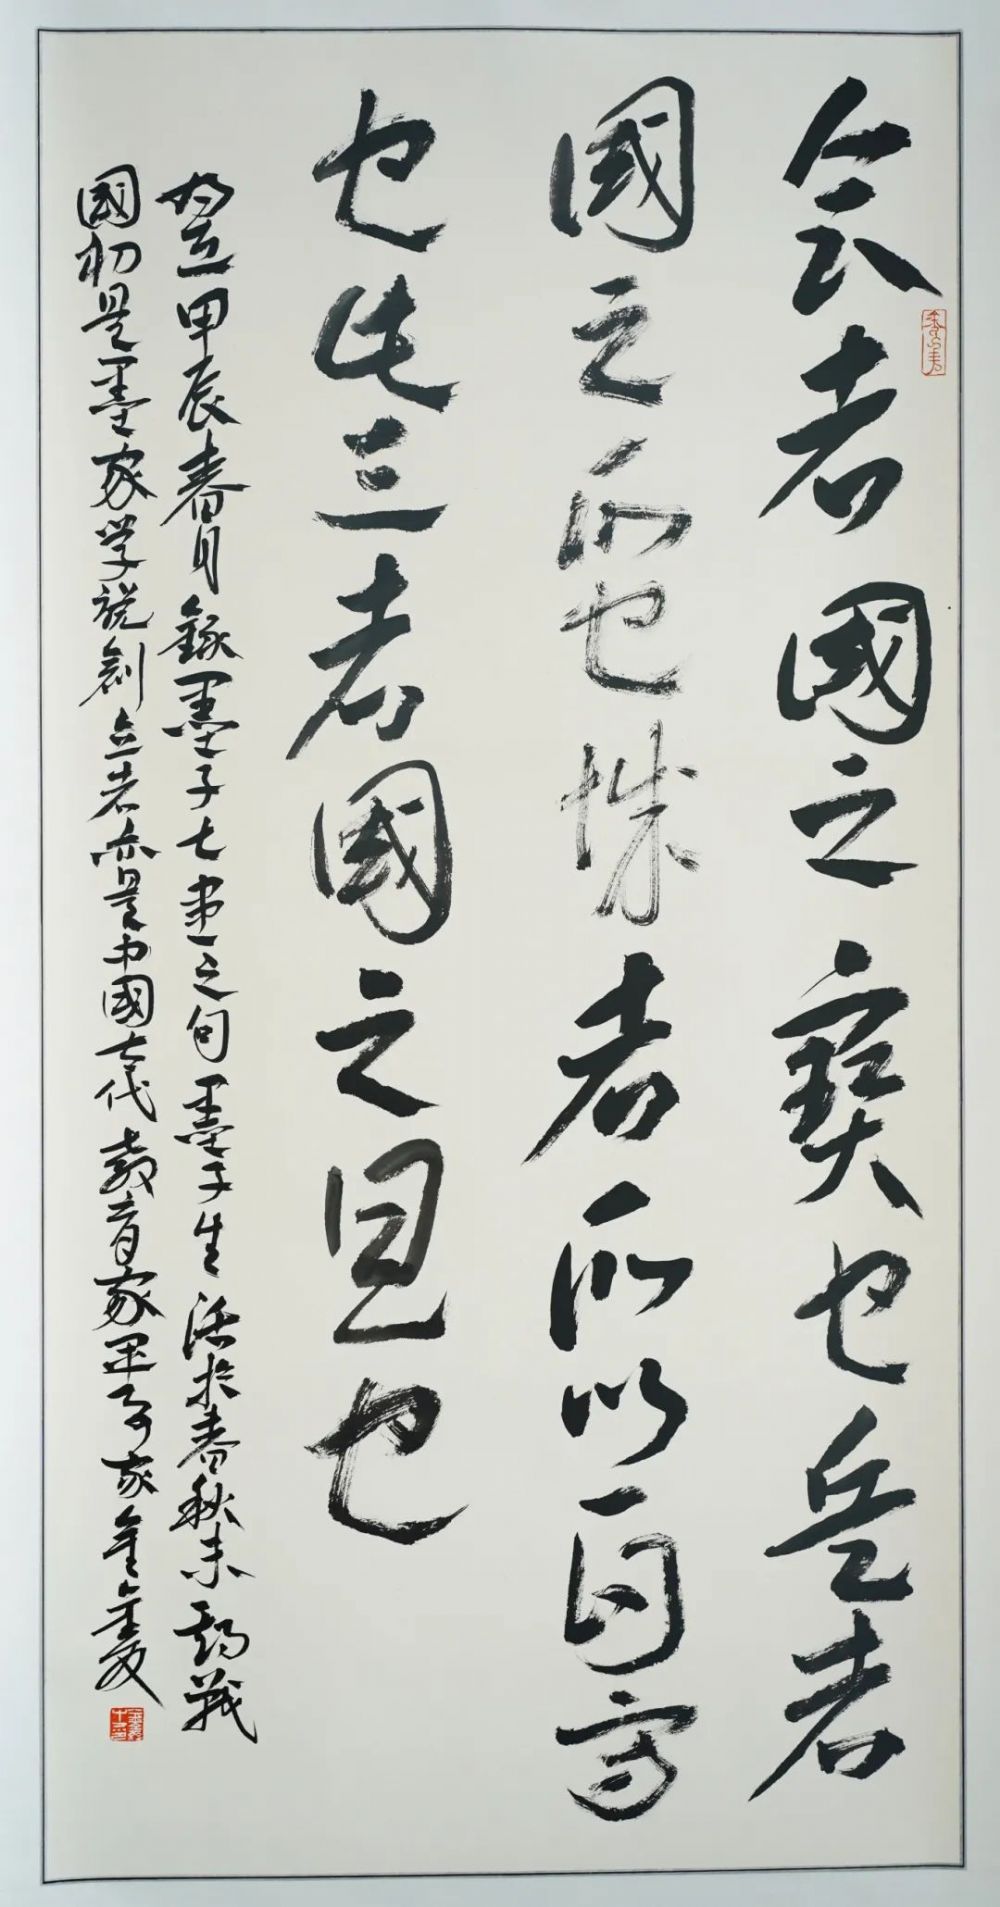 食者國之寶也兵者
國之爪也城者所以自守
也此三者國之具也
甲辰春月錄墨子七患之句墨子生活於春秋末期戰
國初是墨家学説創立者亦是中國古代教育家軍事家